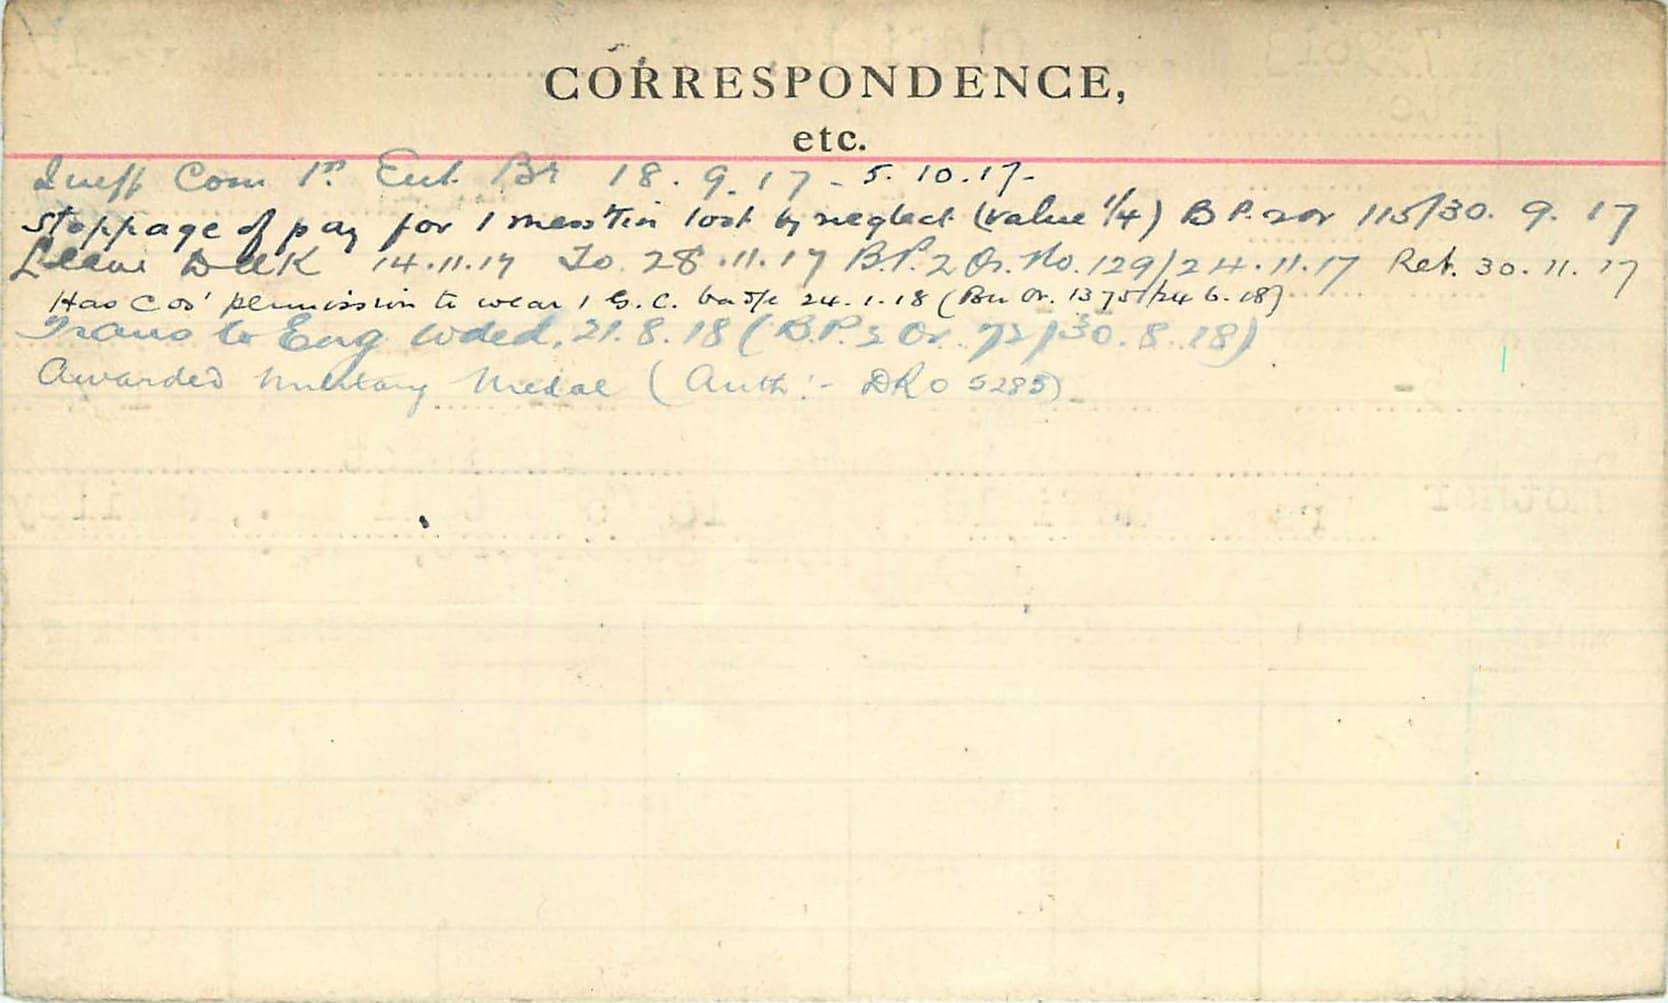 CORRESPONDENCE,
etc.
Com 1st Ent. Bn 18.9.17 - 5.10.17-
Stoppage of pay for 1 mess tin lost by neglect (value 1/4) B.P.2 Or 115/30.9.17
Leave to UK 14.11.17 To 28.11.17 B.P.2 Or. No.129/24.11.17 Ret. 30.11.17
Has C Os' permission to wear 1 G.C. badge 24.1.18 (Bn Or. 1375/24 6.18)
Trans to Eng Wded. 21.8.18 (B.P.2 Or. 72/30.8.18)
Awarded Military Medal (Auth:- DRO 5285)